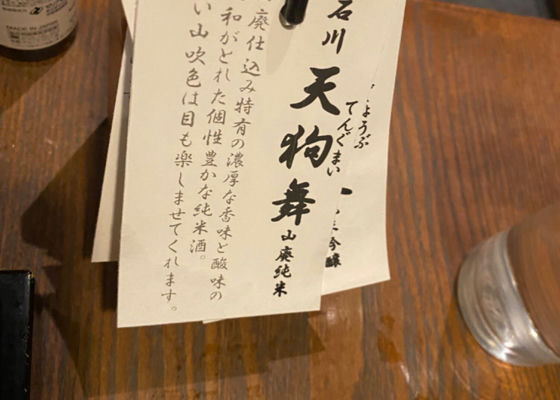 石川
天狗舞
てんぐまい
山廃純米
廃仕込み特有の濃厚な香味と酸味の
和がとれた個性豊かな純米酒。
い山吹色は目も楽しませてくれます。
ょうぶ
吟醸
MADE IN JAPAN